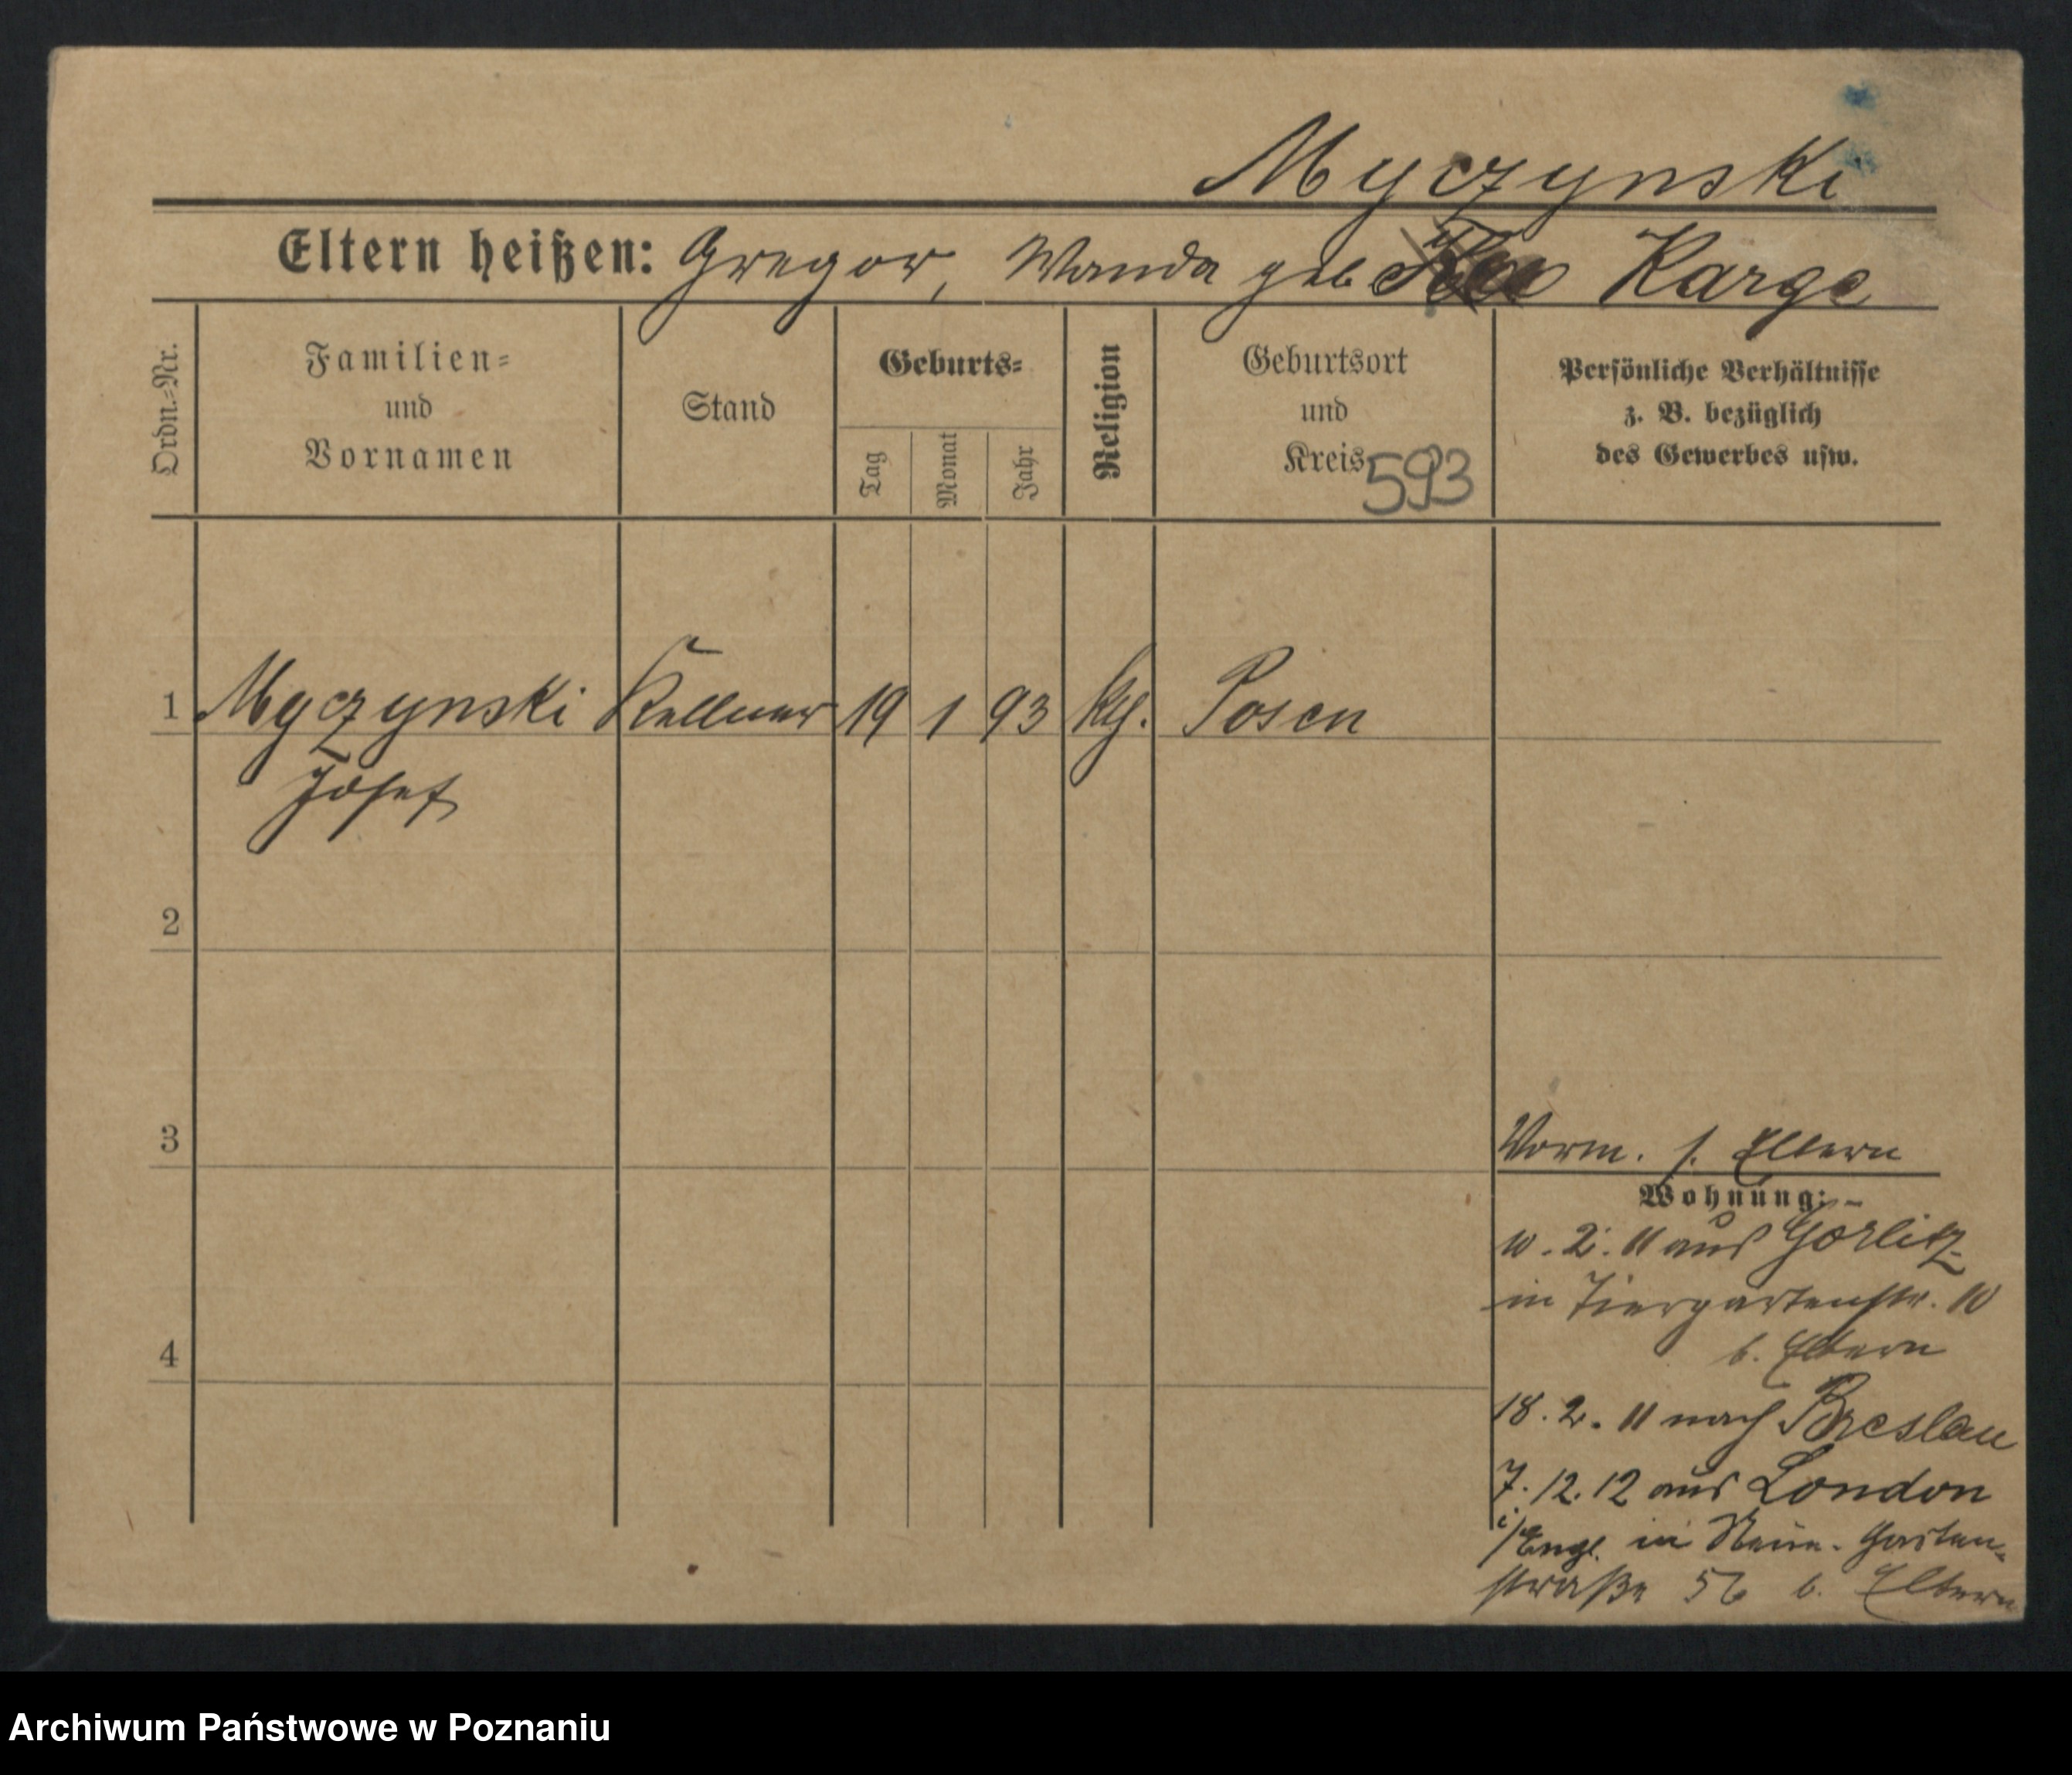 Myczynski
Eltern heißen: Gregor, Wanda geb Karge
Ordn.-Nr.
Familien-
und
Vornamen
Stand
Geburts-
Tag
Monat
Jahr
Religion
Geburtsort
und
Kreis
593
Persönliche Verhältnisse
z. B. bezüglich
des Gewerbes usw.
1 Myczynski Kellner 19 1 93 kth. Posen
Josef
2
3
Vorm. s. Eltern
Wohnung:
10. 2. 11 aus Görlitz
in Tiergartenstr. 10
b. Eltern
4
18. 2. 11 nach Breslau
7. 12. 12 aus London
i/Engl. in Neue-Garten-
straße 56 b. Eltern
Archiwum Państwowe w Poznaniu